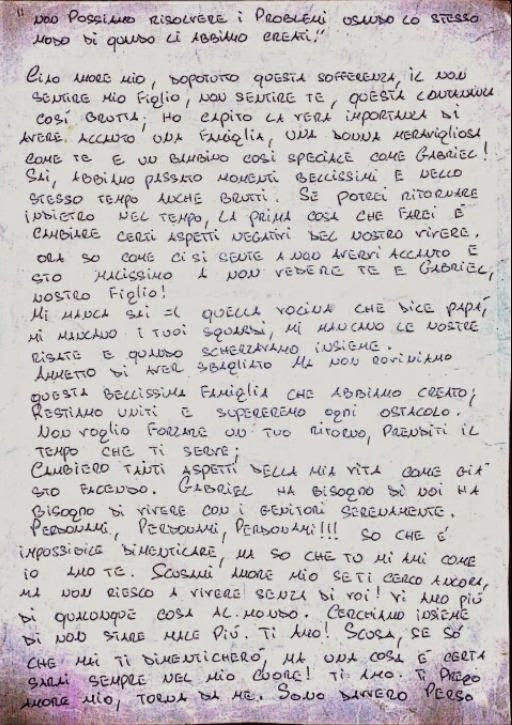 " NON POSSIAMO RISOLVERE i PROBLEMI USANDO LO STESSO
MODO DI QUANDO LI ABBIAMO CREATI."
CIAO AMORE MIO, DOPOTUTO QUESTA SOFFERENZA, IL NON
SENTIRE MIO FIGLIO, NON SENTIRE TE, QUESTA LONTANANZA
COSÌ BRUTTA; HO CAPITO LA VERA IMPORTANZA DI
AVERE ACCANTO UNA FAMIGLIA, UNA DONNA MERAVIGLIOSA
COME TE E UN BAMBINO COSÌ SPECIALE COME GABRIEL!
SAI, ABBIAMO PASSATO MOMENTI BELLISSIMI E NELLO
STESSO TEMPO ANCHE BRUTTI. SE POTREI RITORNARE
INDIETRO NEL TEMPO, LA PRIMA COSA CHE FAREI È
CAMBIARE CERTI ASPETTI NEGATIVI DEL NOSTRO VIVERE.
ORA SO COME CI SI SENTE A NON AVERVI ACCANTO E
STO MALISSIMO A NON VEDERE TE E GABRIEL,
NOSTRO FIGLIO!
MI MANCA SAI =( QUELLA VOCINA CHE DICE PAPÀ,
MI MANCANO I TUOI SGUARDI, MI MANCANO LE NOSTRE
RISATE E QUANDO SCHERZAVAMO INSIEME.
AMMETTO DI AVER SBAGLIATO MA NON ROVINIAMO
QUESTA BELLISSIMA FAMIGLIA CHE ABBIAMO CREATO;
RESTIAMO UNITI E SUPEREREMO OGNI OSTACOLO.
NON VOGLIO FORZARE UN TUO RITORNO, PRENDITI IL
TEMPO CHE TI SERVE;
CAMBIERÒ TANTI ASPETTI DELLA MIA VITA COME GIÀ
STO FACENDO. GABRIEL HA BISOGNO DI NOI HA
BISOGNO DI VIVERE CON I GENITORI SERENAMENTE.
PERDONAMI, PERDONAMI, PERDONAMI!!! SO CHE È
IMPOSSIBILE DIMENTICARE, MA SO CHE TU MI AMI COME
IO AMO TE. SCUSAMI AMORE MIO SE TI CERCO ANCORA,
MA NON RIESCO A VIVERE SENZA DI VOI! VI AMO PIÙ
DI QUALUNQUE COSA AL MONDO. CERCHIAMO INSIEME
DI NON STARE MALE PIÙ. TI AMO! SCUSA, SE SO
CHE MAI TI DIMENTICHERÒ, MA UNA COSA È CERTA
SARAI SEMPRE NEL MIO CUORE! TI AMO. TI PREGO
AMORE MIO, TORNA DA ME. SONO DAVVERO PERSO